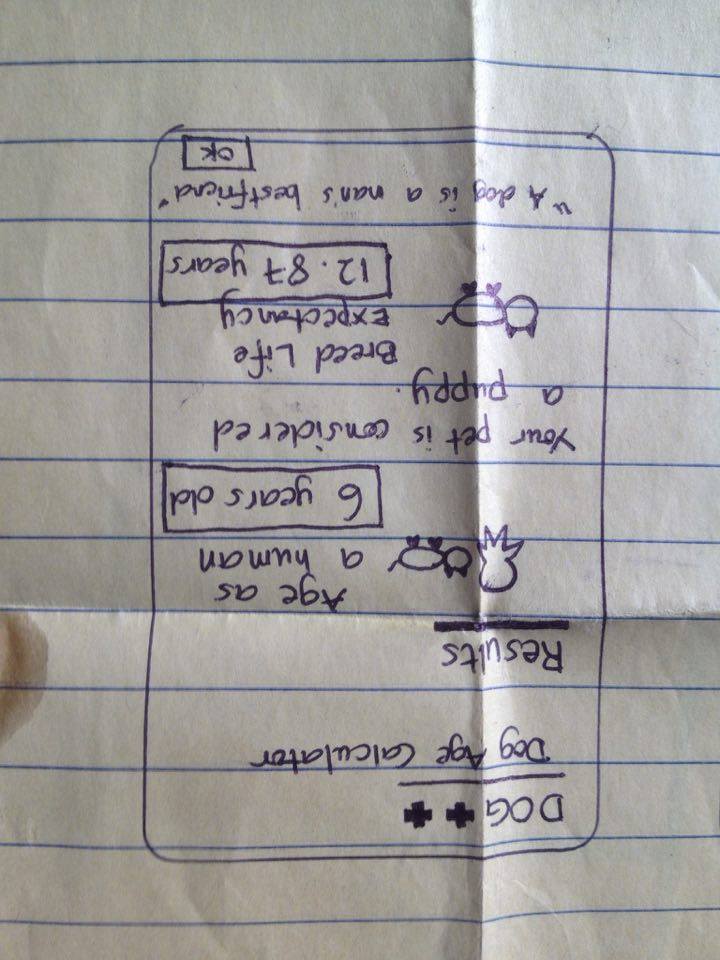 DOG ++
Dog Age Calculator
Results
Age as
a human
6 years old
Your pet is considered
a puppy.
Breed Life
Expectancy
12.87 years
"A dog is a man's bestfriend"
OK